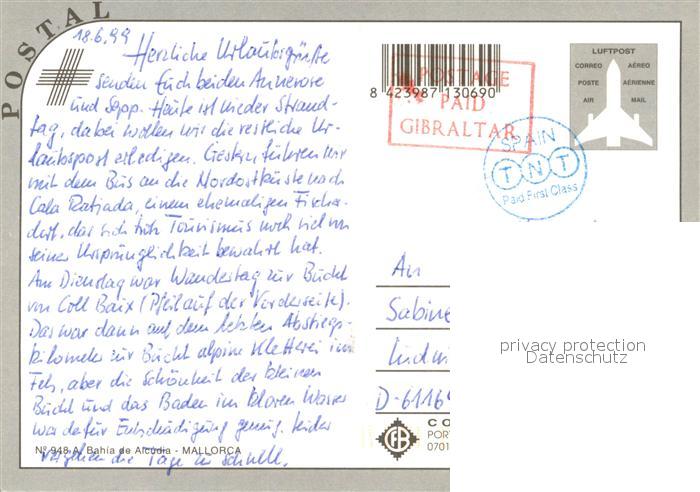 POSTAL
18.6.99
Herzliche Urlaubsgrüße
senden Euch beiden Annerose
und Sepp. Heute ist wieder Strand-
tag, dabei wollen wir die restliche Ur-
laubspost erledigen. Gestern fuhren wir
mit dem Bus an die Nordostküste nach
Cala Ratjada, einem ehemaligen Fischer-
dorf, das sich trotz Tourismus noch viel von
seiner Ursprünglichkeit bewahrt hat.
Am Dienstag war Wandertag zur Bucht
von Coll Baix (Pfeil auf der Vorderseite).
Das war dann auf dem letzten Abstiegs-
kilometer zur Bucht alpine Kletterei im
Fels, aber die Schönheit der kleinen
Bucht und das Baden im klaren Wasser
war dafür Entschädigung genug. Leider
vergehen die Tage zu schnell.
Nº 948-A Bahía de Alcúdia - MALLORCA
8 423987 130690
POSTAGE
PAID
GIBRALTAR
SPAIN
TNT
Paid First Class
LUFTPOST
CORREO AÉREO
POSTE AÉRIENNE
AIR MAIL
An
Sabine
D-6116
privacy protection
Datenschutz
CO
POR
0701